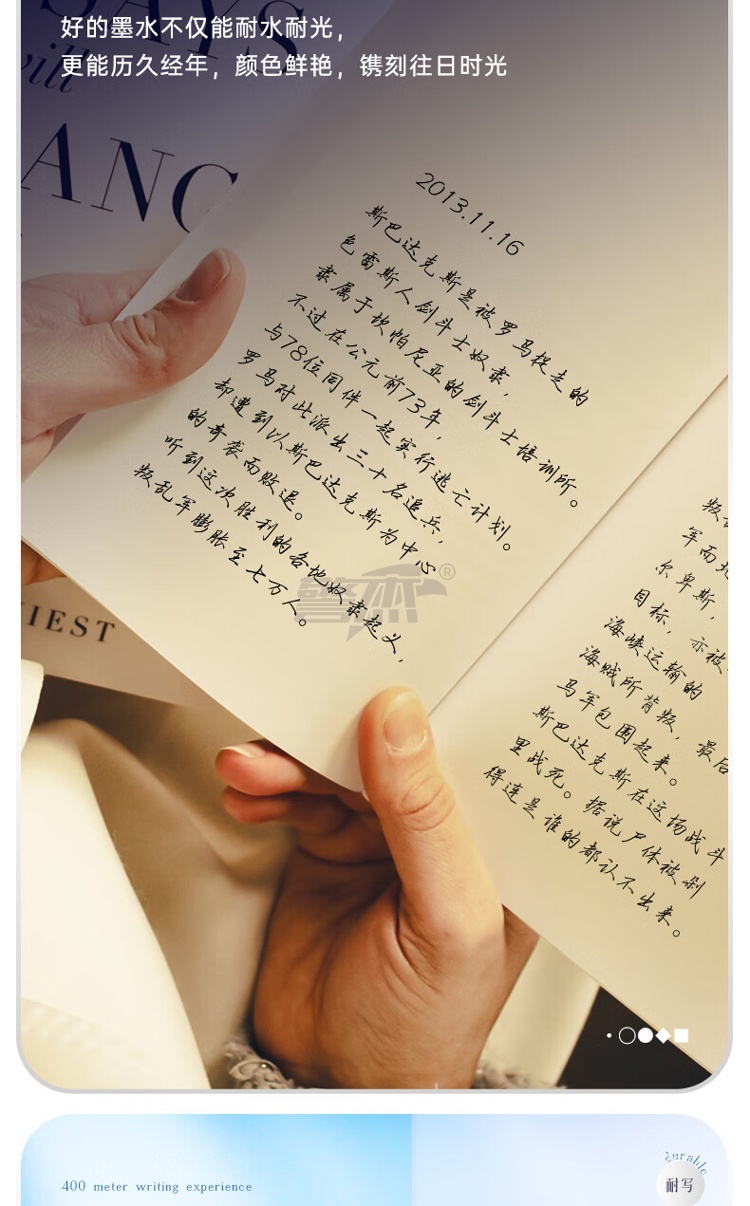 好的墨水不仅能耐水耐光，
更能历久经年，颜色鲜艳，镌刻往日时光
SAYS
will
ANC
2013.11.16
斯巴达克斯是被罗马捉走的
色雷斯人剑斗士奴隶，
隶属于坎帕尼亚的剑斗士培训所。
不过在公元前73年，
与78位同伴一起实行逃亡计划。
罗马对此派出三十名追兵，
却遭到以斯巴达克斯为中心
的奇袭而败退。
听到这次胜利的各地奴隶起义，
叛乱军膨胀至七万人。
警杰®
IEST
叛
军而
尔卑斯，
目标，亦被
海峡运输的
海贼所背叛，最后
马军包围起来。
斯巴达克斯在这场战斗
里战死。据说尸体被剁
得连是谁的都认不出来。
400 meter writing experience
durable
耐写